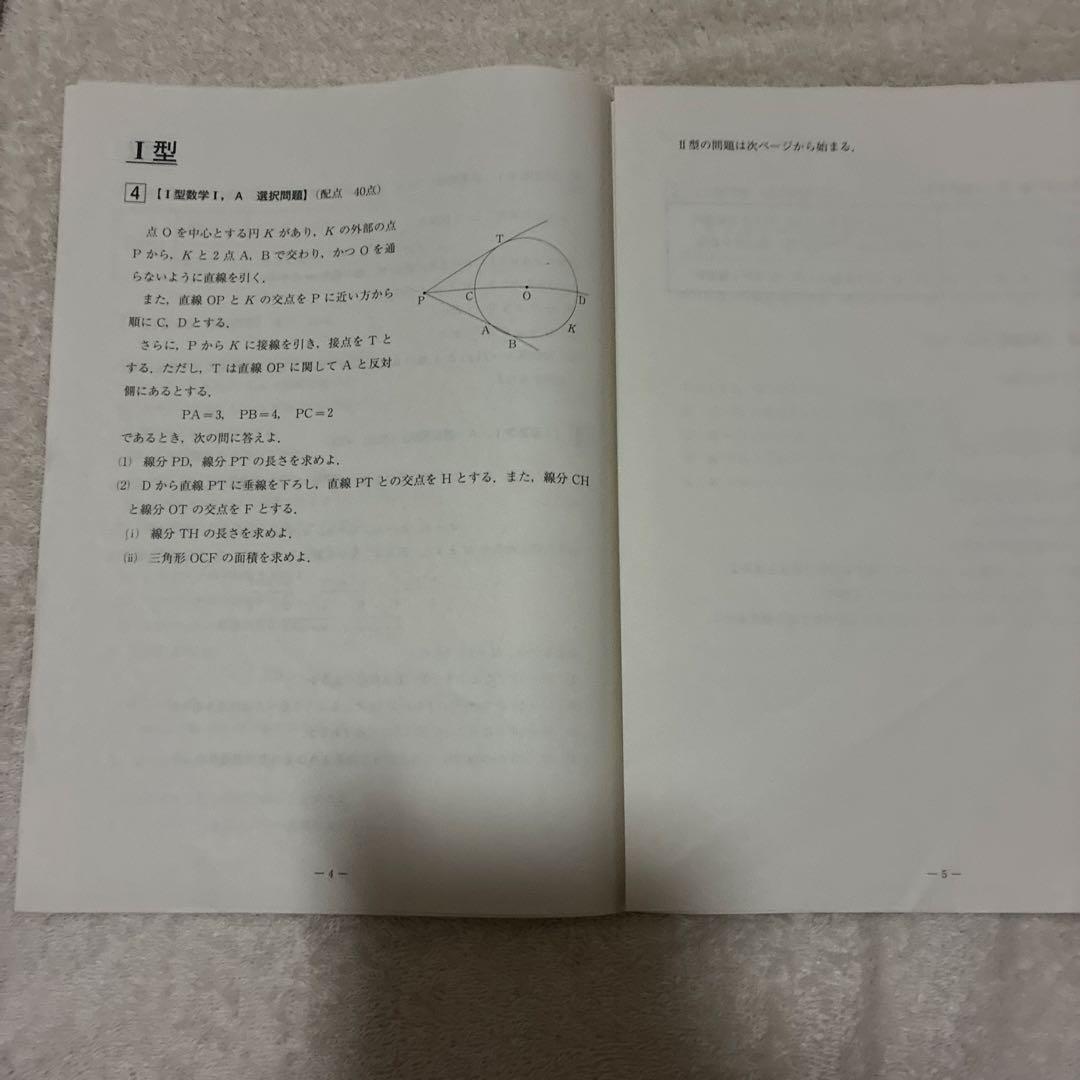 I型
4 【I型数学I，A 選択問題】(配点 40点)
点Oを中心とする円Kがあり，Kの外部の点
Pから，Kと2点A，Bで交わり，かつOを通
らないように直線を引く．
また，直線OPとKの交点をPに近い方から
順にC，Dとする．
さらに，PからKに接線を引き，接点をTと
する．ただし，Tは直線OPに関してAと反対
側にあるとする．
PA=3，PB=4，PC=2
であるとき，次の問に答えよ．
(1) 線分PD，線分PTの長さを求めよ．
(2) Dから直線PTに垂線を下ろし，直線PTとの交点をHとする．また，線分CH
と線分OTの交点をFとする．
(i) 線分THの長さを求めよ．
(ii) 三角形OCFの面積を求めよ．
T
P
C
O
D
A
K
B
―4―
II型の問題は次ページから始まる．
―5―